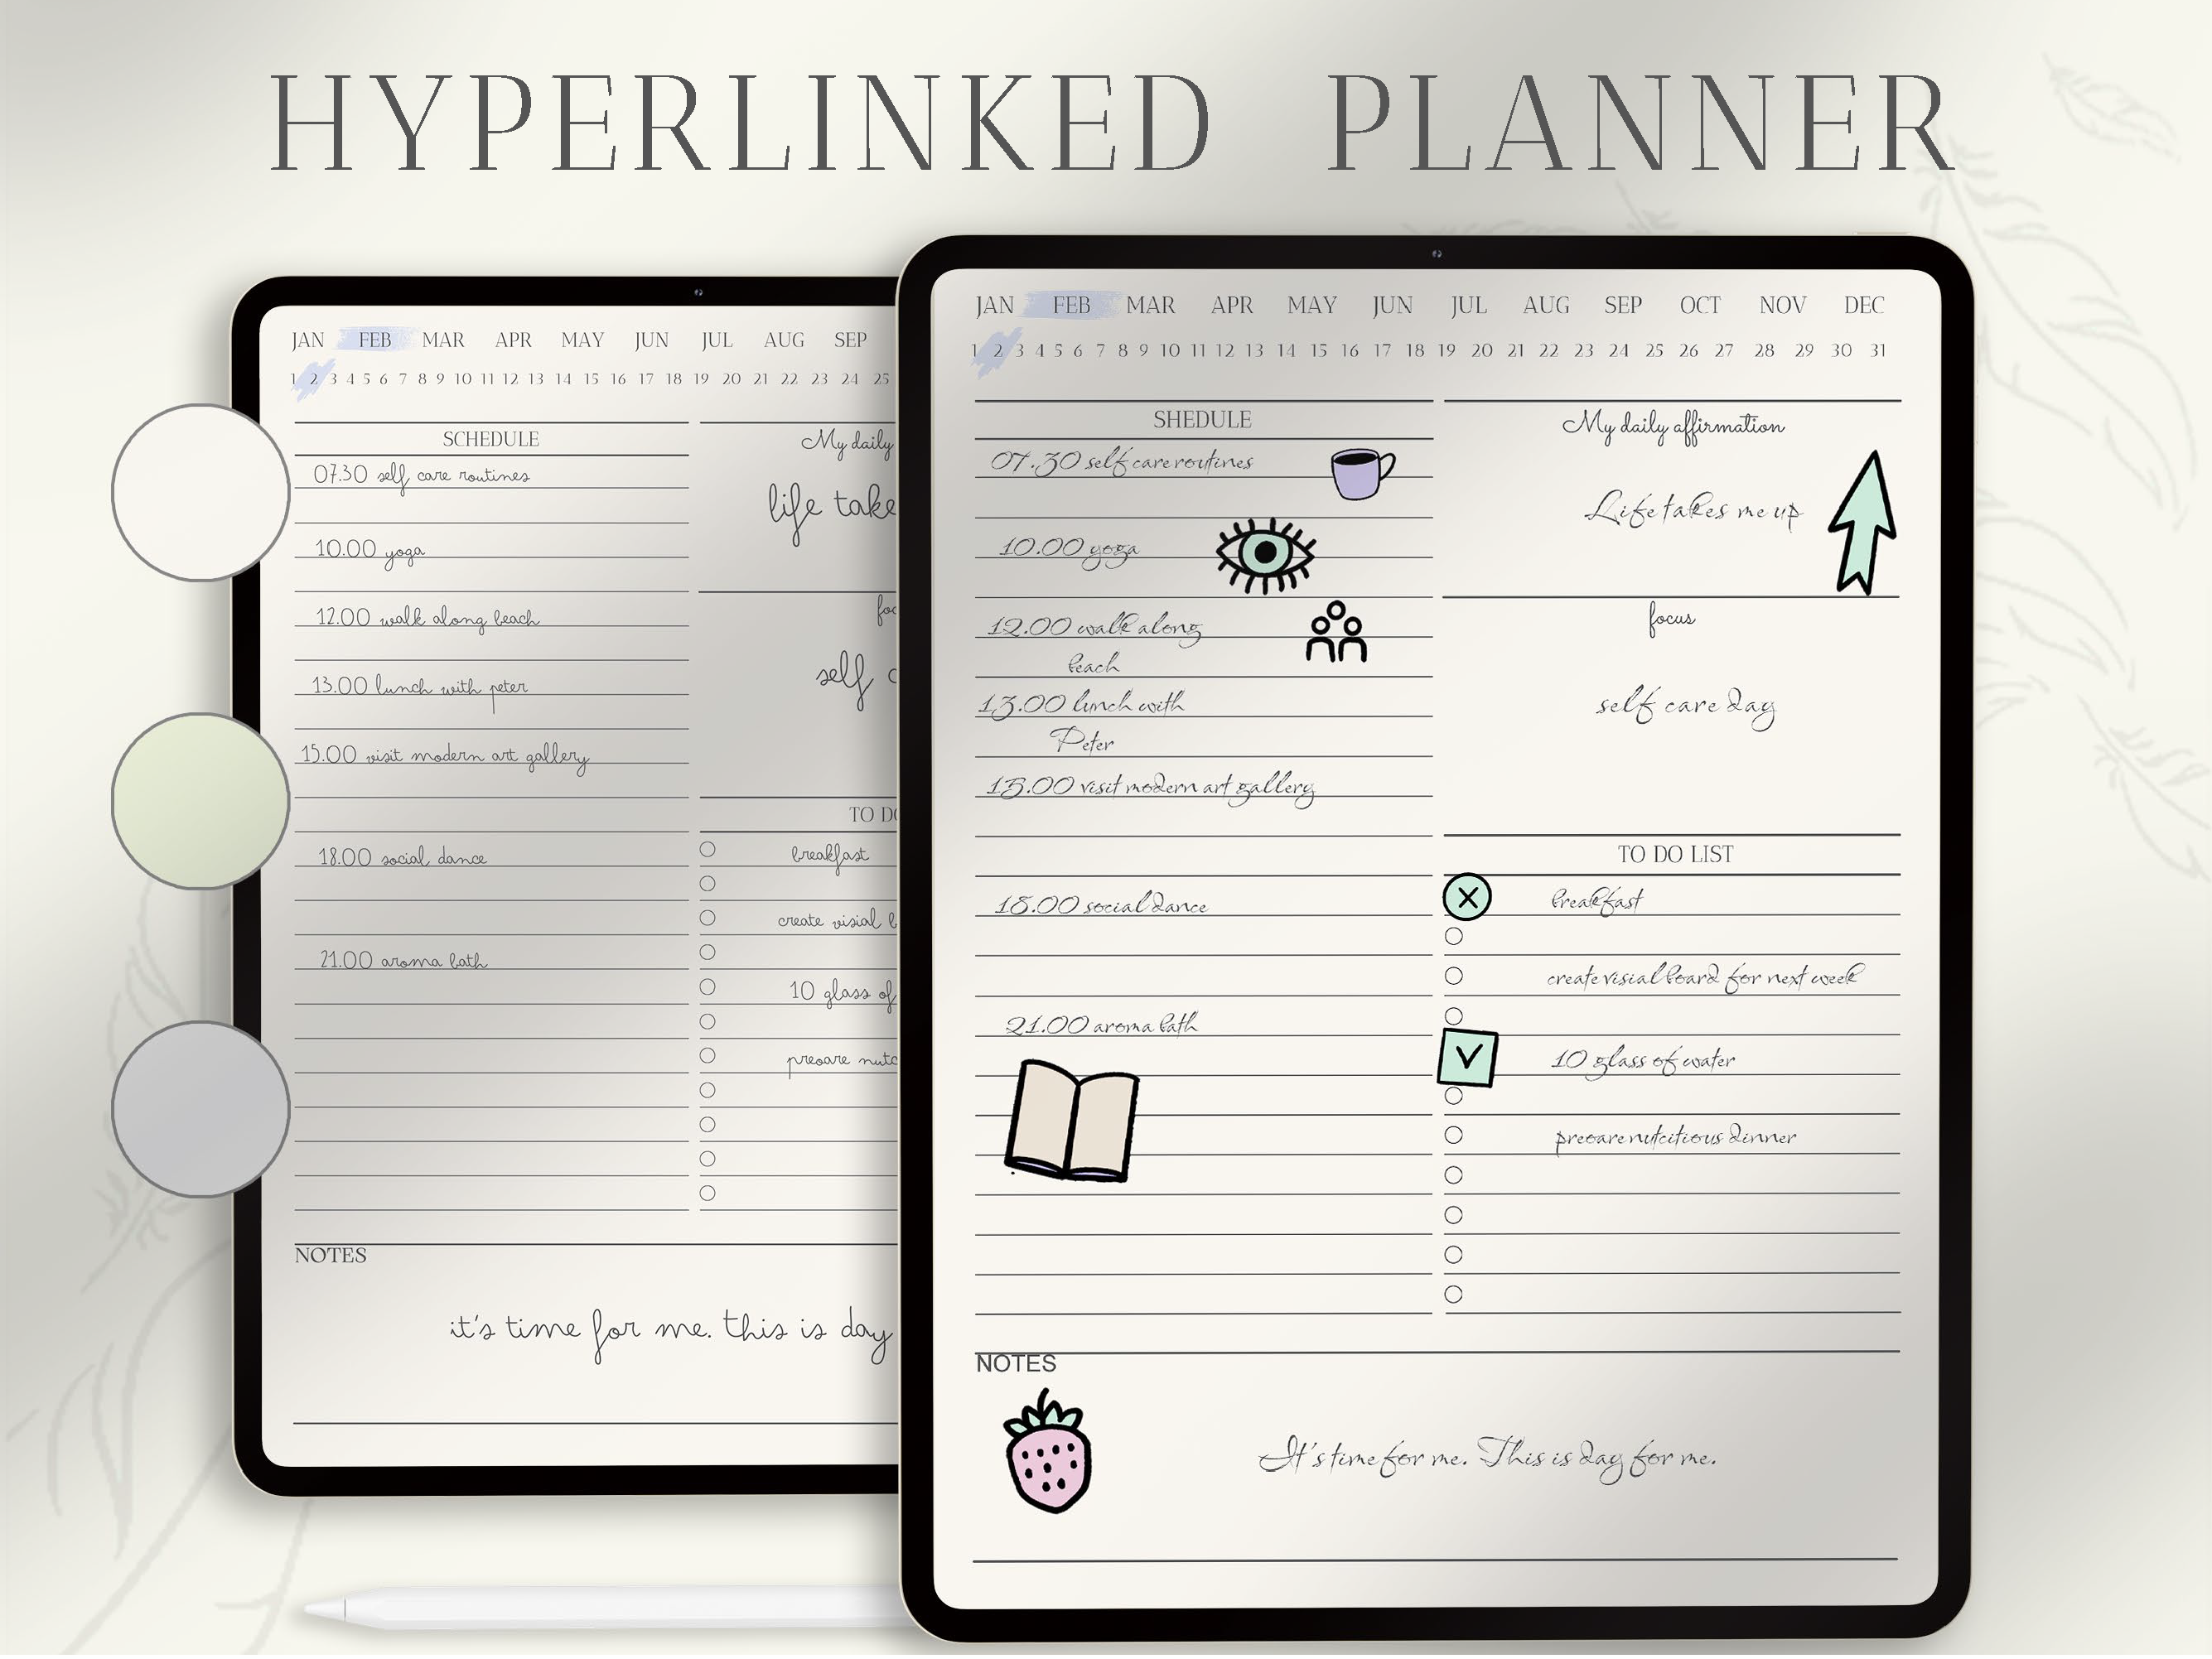 HYPERLINKED PLANNER
JAN FEB MAR APR MAY JUN JUL AUG SEP
1 2 3 4 5 6 7 8 9 10 11 12 13 14 15 16 17 18 19 20 21 22 23 24 25
SCHEDULE
07.30 self care routines
10.00 yoga
12.00 walk along beach
13.00 lunch with peter
15.00 visit modern art gallery
18.00 social dance
21.00 aroma bath
My daily
life take
foc
self c
TO DO
breakfast
create visial b
10 glass of
preoare nutc
NOTES
it's time for me. this is day
JAN FEB MAR APR MAY JUN JUL AUG SEP OCT NOV DEC
1 2 3 4 5 6 7 8 9 10 11 12 13 14 15 16 17 18 19 20 21 22 23 24 25 26 27 28 29 30 31
SHEDULE
07.30 self care routines
10.00 yoga
12.00 walk along
beach
13.00 lunch with
Peter
15.00 visit modern art gallery
18.00 social dance
21.00 aroma bath
My daily affirmation
Life takes me up
focus
self care day
TO DO LIST
breakfast
create visial board for next week
10 glass of water
preoare nutcitious dinner
NOTES
It's time for me. This is day for me.